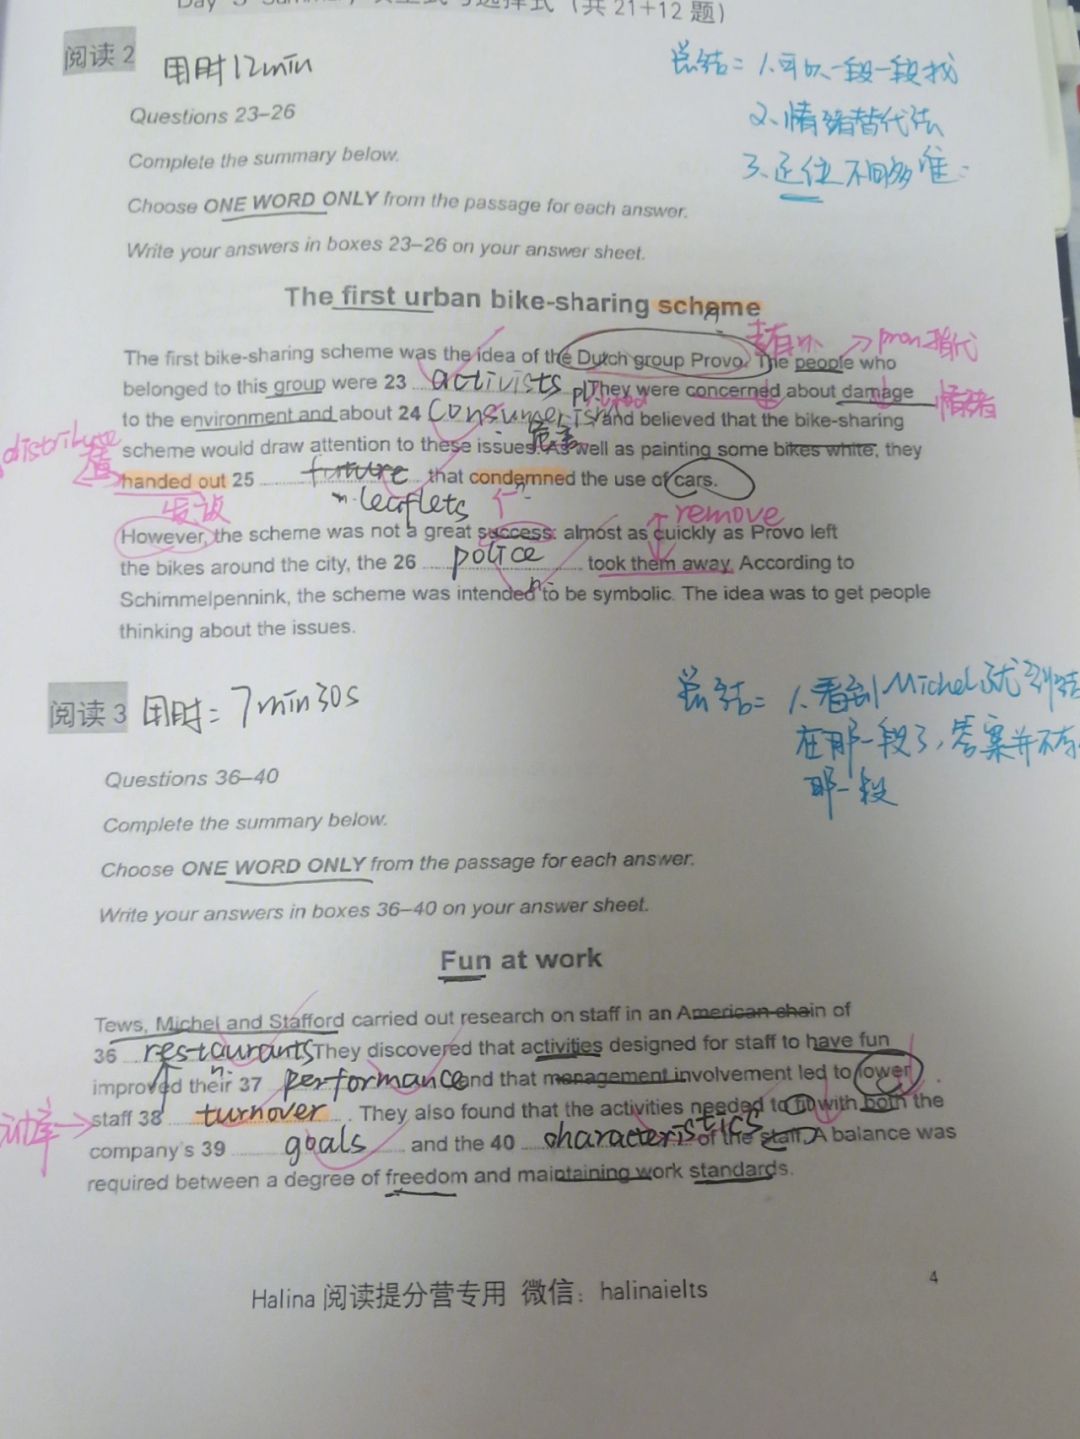 Day 3 Summary 填空式与选择式（共 21+12 题）
阅读 2 用时12min
总结：1.可以一段一段找
2.情绪替代法
3.定位不同多准
Questions 23–26
Complete the summary below.
Choose ONE WORD ONLY from the passage for each answer.
Write your answers in boxes 23–26 on your answer sheet.
The first urban bike-sharing scheme
n.
The first bike-sharing scheme was the idea of the Dutch group Provo. The people who → pron指代
belonged to this group were 23 activists pl. They were concerned about damage 情绪
to the environment and about 24 consumerism and believed that the bike-sharing
scheme would draw attention to these issues. As well as painting some bikes white, they
危害
distribute
handed out 25 future that condemned the use of cars.
n. leaflets
发放
remove
However, the scheme was not a great success: almost as quickly as Provo left
the bikes around the city, the 26 police took them away. According to
n.
Schimmelpennink, the scheme was intended to be symbolic. The idea was to get people
thinking about the issues.
阅读 3 用时：7min30s
总结：1.看到Michel就
在那一段了，答案并不在
那一段
Questions 36–40
Complete the summary below.
Choose ONE WORD ONLY from the passage for each answer.
Write your answers in boxes 36–40 on your answer sheet.
Fun at work
Tews, Michel and Stafford carried out research on staff in an American chain of
36 restaurants They discovered that activities designed for staff to have fun
n.
improved their 37 performance and that management involvement led to lower
staff 38 turnover . They also found that the activities needed to fit with both the
company's 39 goals and the 40 characteristics of the staff. A balance was
required between a degree of freedom and maintaining work standards.
4
Halina 阅读提分营专用 微信：halinaielts